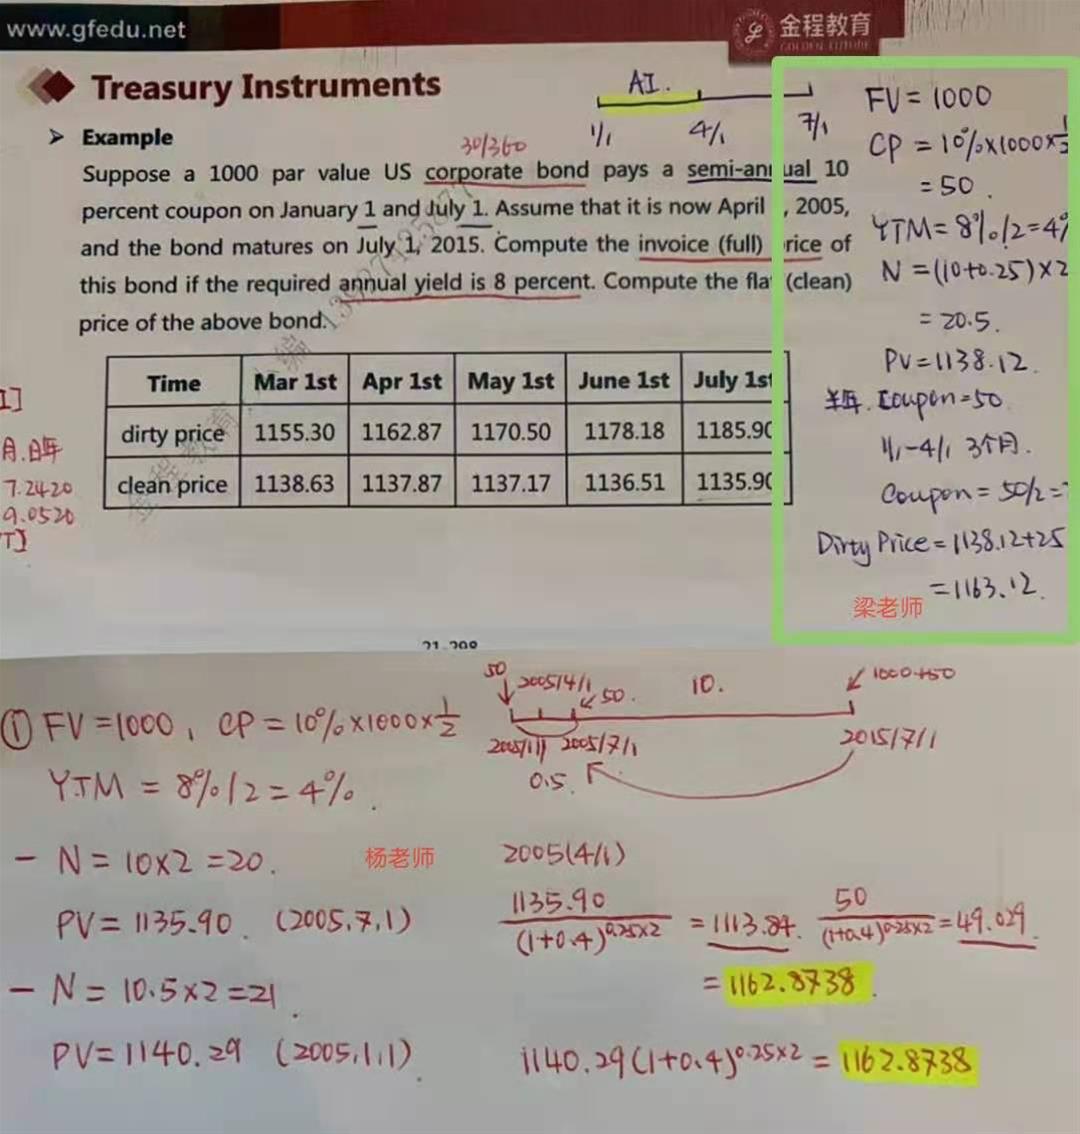 www.gfedu.net
金程教育
GOLDEN FUTURE
Treasury Instruments
AI.
1/1 4/1 7/1
Example
30/360
Suppose a 1000 par value US corporate bond pays a semi-annual 10
percent coupon on January 1 and July 1. Assume that it is now April , 2005,
and the bond matures on July 1, 2015. Compute the invoice (full) rice of
this bond if the required annual yield is 8 percent. Compute the fla (clean)
price of the above bond.
Time Mar 1st Apr 1st May 1st June 1st July 1st
dirty price 1155.30 1162.87 1170.50 1178.18 1185.90
clean price 1138.63 1137.87 1137.17 1136.51 1135.90
I]
月.日年
7.2420
9.0520
T]
FV = 1000
CP = 10%×1000×1/2
= 50.
YTM = 8%/2=4%
N = (10+0.25)×2
= 20.5.
PV=1138.12.
半年. Coupon=50.
1/1-4/1 3个月.
Coupon = 50/2=
Dirty Price=1138.12+25
=1163.12.
梁老师
21-298
① FV=1000, CP = 10%×1000×1/2
YTM = 8%/2 = 4%.
50 2005/4/1 50. 10. 1000+50
2005/1/1 2005/7/1 2015/7/1
0.5.
- N = 10×2 =20.
杨老师
PV= 1135.90. (2005.7.1)
- N= 10.5×2=21.
PV=1140.29 (2005.1.1).
2005(4/1)
1135.90/(1+0.4)^0.25×2 = 1113.84. 50/(1+0.4)^0.25×2=49.029.
= 1162.8738.
1140.29(1+0.4)^0.25×2 = 1162.8738